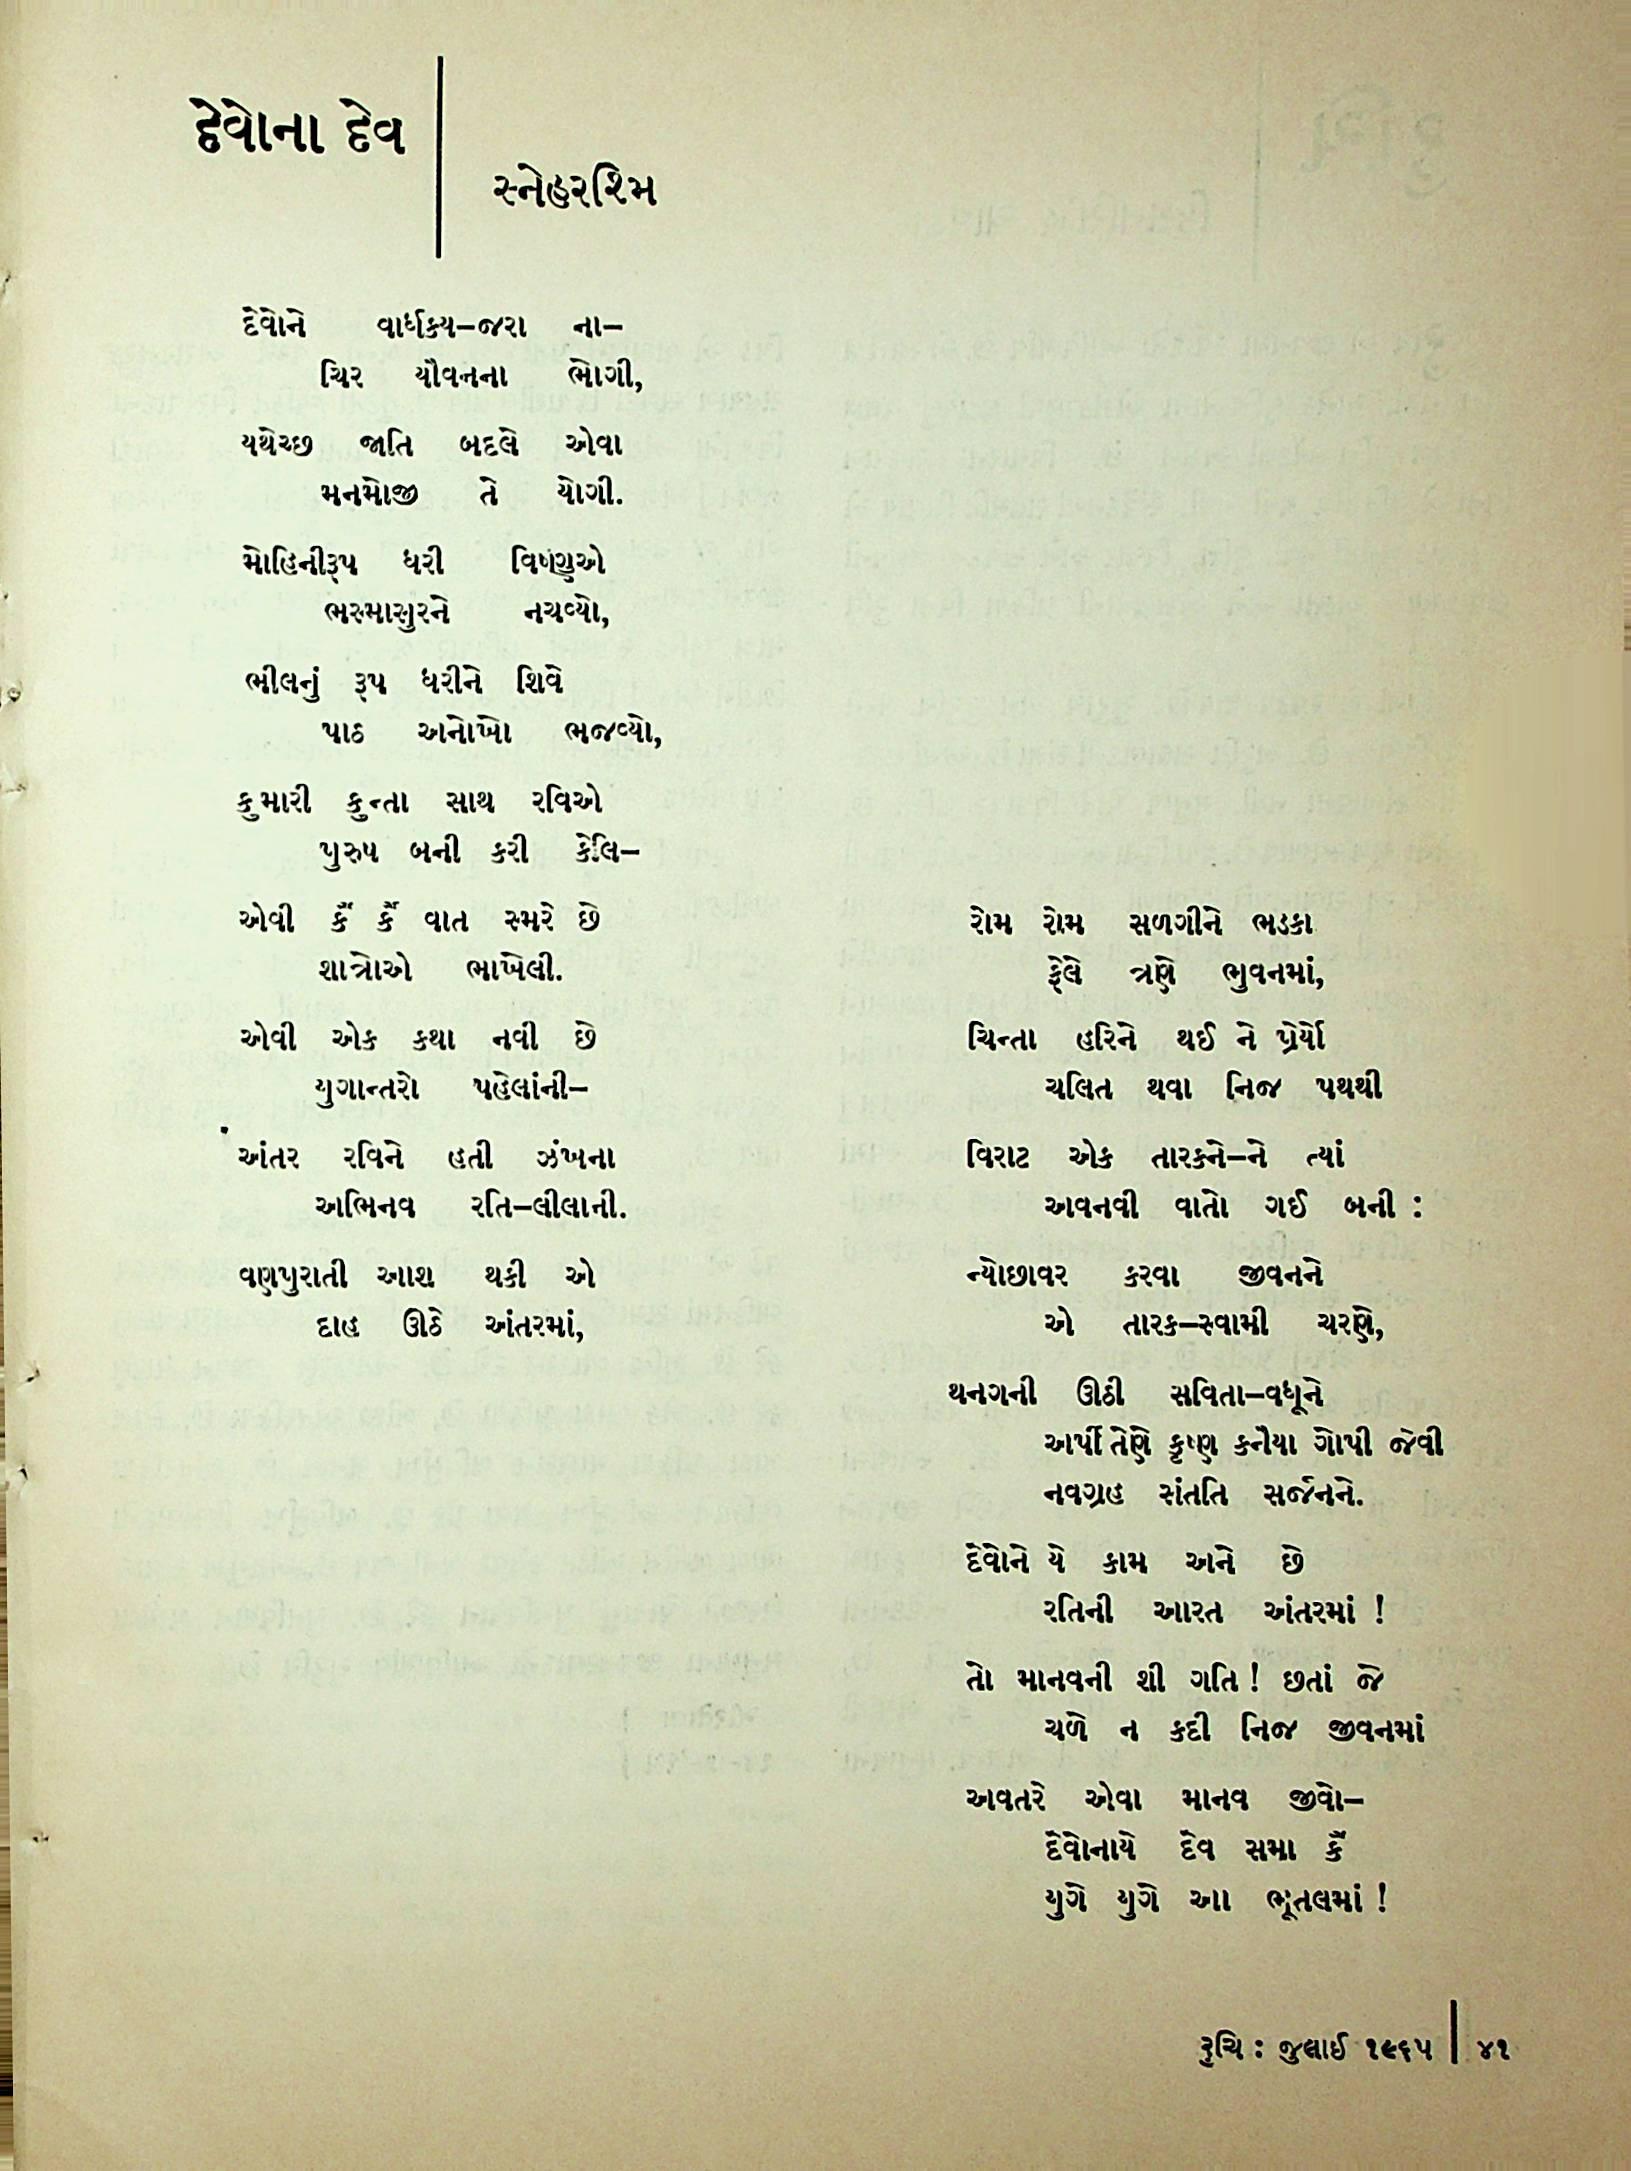 દેવોના દેવ
સ્નેહરશ્મિ
દેવોને વાર્ધક્ય–જરા ના–
ચિર યૌવનના ભોગી,
યથેચ્છ જાતિ બદલે એવા
મનમોજી તે યોગી.
મોહિનીરૂપ ધરી વિષ્ણુએ
ભસ્માસુરને નચવ્યો,
ભીલનું રૂપ ધરીને શિવે
પાઠ અનોખો ભજવ્યો,
કુમારી કુન્તા સાથ રવિએ
પુરુષ બની કરી કેલિ–
એવી કૈં કૈં વાત સ્મરે છે
શાત્રોએ ભાખેલી.
એવી એક કથા નવી છે
યુગાન્તરો પહેલાંની–
અંતર રવિને હતી ઝંખના
અભિનવ રતિ–લીલાની.
વણપુરાતી આશ થકી એ
દાહ ઊઠે અંતરમાં,
રોમ રોમ સળગીને ભડકા
ફેલે ત્રણે ભુવનમાં,
ચિન્તા હરિને થઈ ને પ્રેર્યો
ચલિત થવા નિજ પથથી
વિરાટ એક તારકને–ને ત્યાં
અવનવી વાતો ગઈ બની :
ન્યોછાવર કરવા જીવનને
એ તારક–સ્વામી ચરણે,
થનગની ઊઠી સવિતા–વધૂને
અર્પી તેણે કૃષ્ણ કનૈયા ગોપી જેવી
નવગ્રહ સંતતિ સર્જનને.
દેવોને યે કામ અને છે
રતિની આરત અંતરમાં !
તો માનવની શી ગતિ ! છતાં જે
ચળે ન કદી નિજ જીવનમાં
અવતરે એવા માનવ જીવો–
દેવોનાયે દેવ સમા કૈં
યુગે યુગે આ ભૂતલમાં !
રુચિ : જુલાઈ ૧૯૬૫ | ૪૧